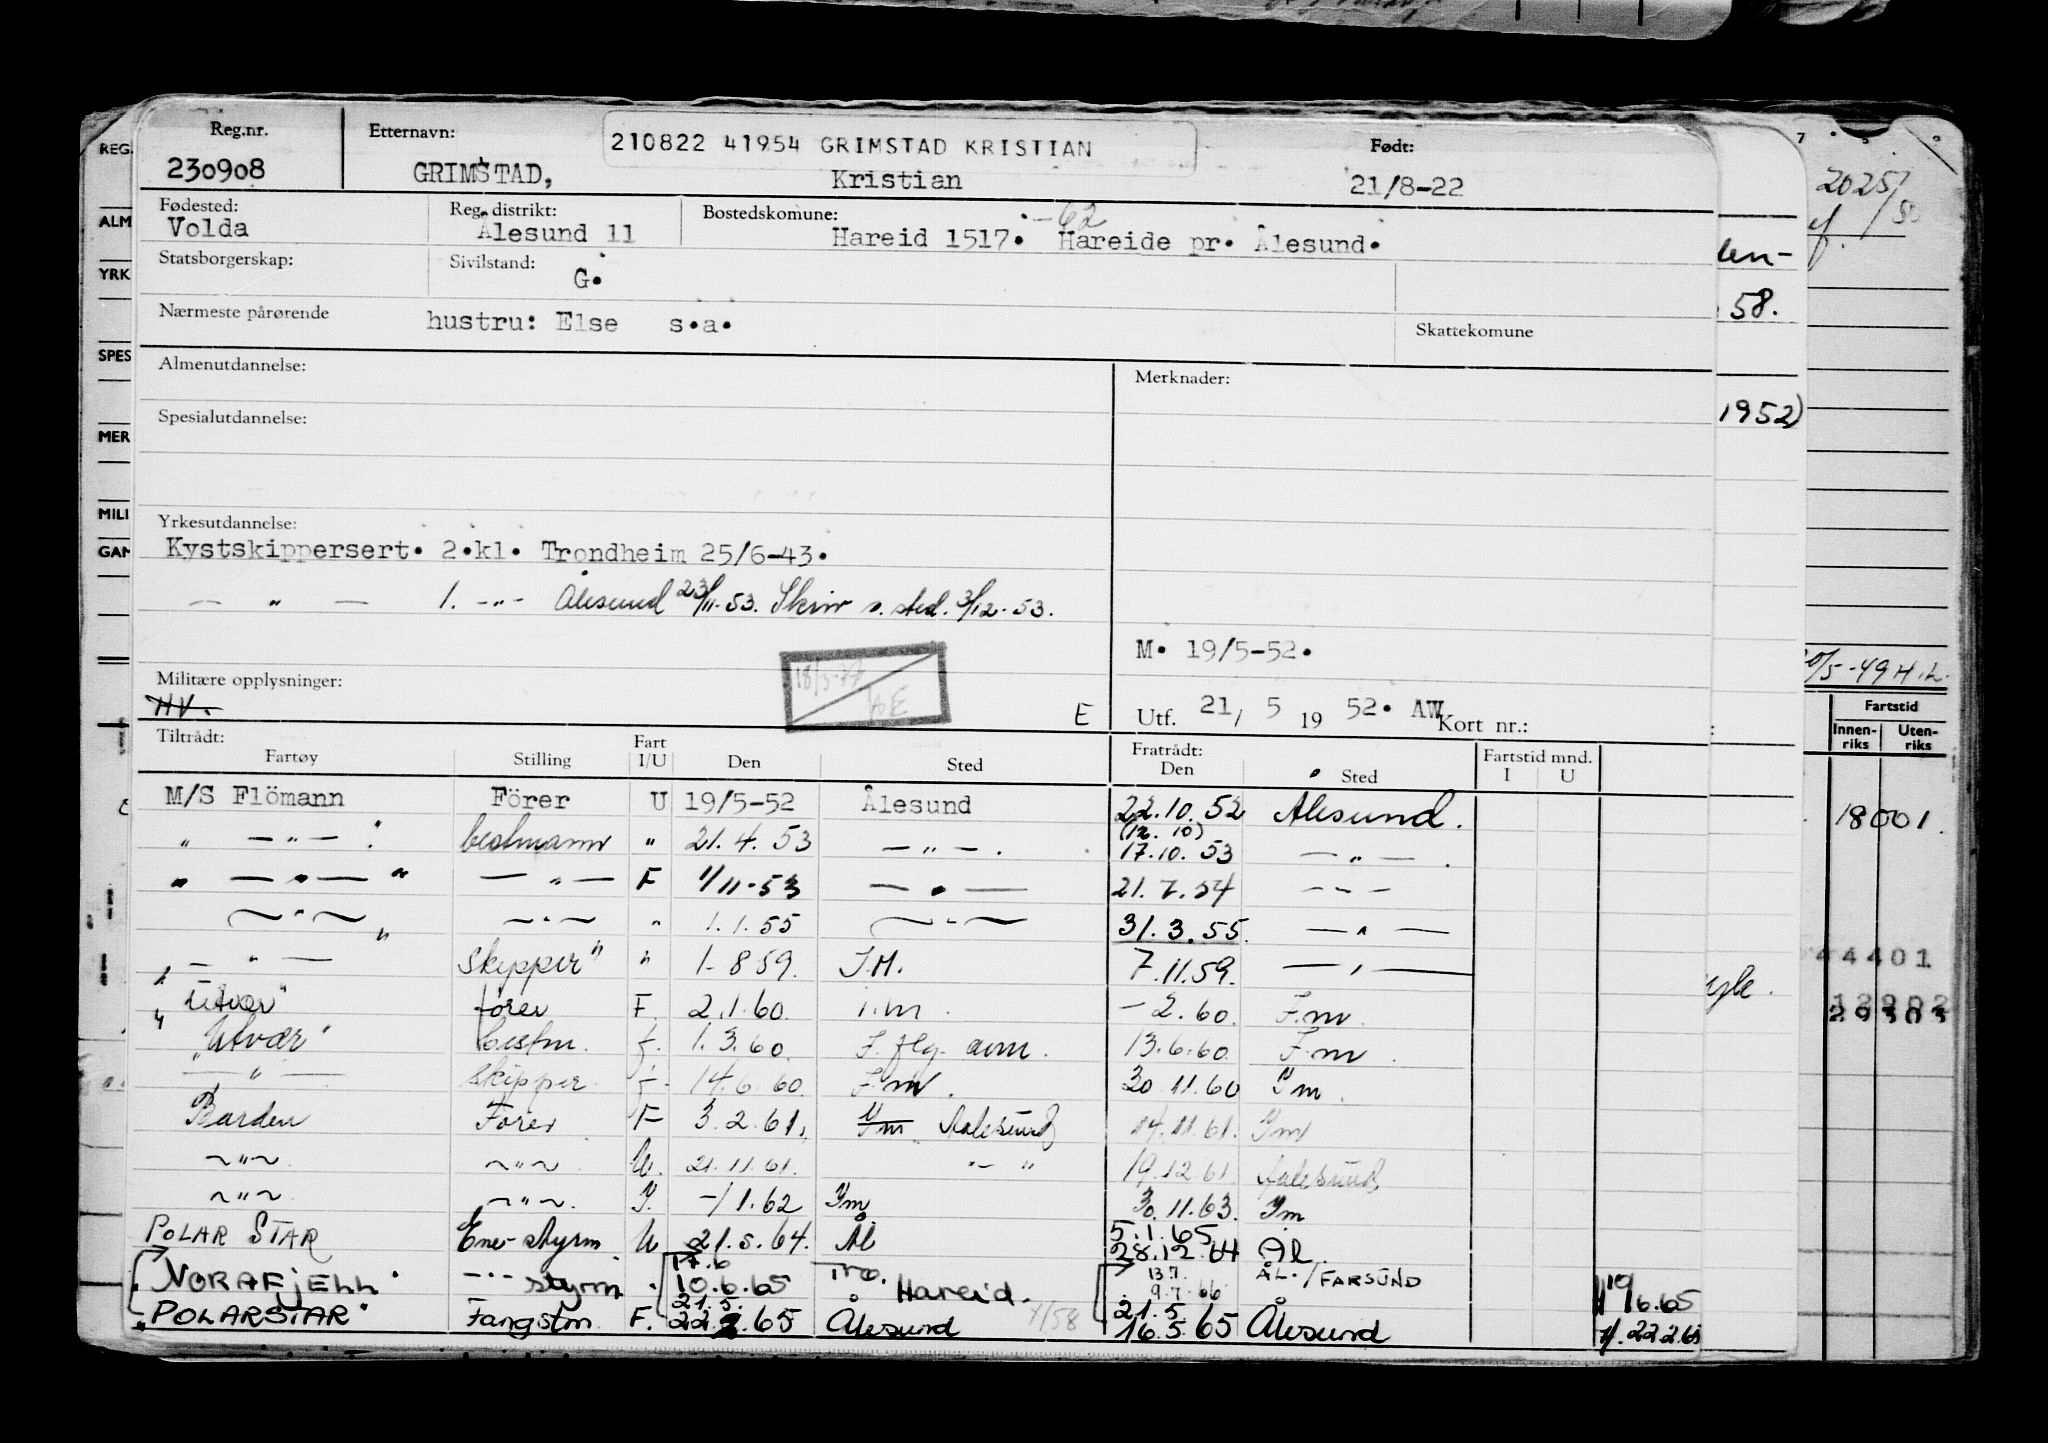 Reg.nr. Etternavn: 210822 41954 GRIMSTAD KRISTIAN Født:
230908 GRIMSTAD, Kristian 21/8-22
Fødested: Reg. distrikt: Bostedskomune: -62
Volda Ålesund 11 Hareid 1517. Hareide pr. Ålesund.
Statsborgerskap: Sivilstand: G.
Nærmeste pårørende hustru: Else s.a. Skattekomune
Almenutdannelse: Merknader:
Spesialutdannelse:
Yrkesutdannelse:
Kystskippersert. 2.kl. Trondheim 25/6-43.
— " — 1. -"- Ålesund 23/11-53. Skriv s. sted. 3/12-53.
M. 19/5-52.
Militære opplysninger:
HV.
E Utf. 21/ 5 19 52. AW Kort nr.:
Tiltrådt: Fratrådt: Fartstid mnd.
Fartøy Stilling Fart I/U Den Sted Den Sted I U
M/S Flömann Förer U 19/5-52 Ålesund 22.10.52 Ålesund.
" -"- bestmann " 21.4.53 -"-. (12.10) 17.10.53 -"-.
" -"- " -"- F 1/11-53 -"- 21.7.54 ---
-"- " -"- " 1.1.55 -"- 31.3.55. -"-
-"- Skipper " " 1-8 59. I.M. 7.11.59. -"-
" Utvær " fører F. 2.1.60. i.m. - 2.60. I.m.
" Utvær " bestm. f. 1.3.60. I. flg. anm. 13.6.60. I.m.
-"- Skipper f. 14.6.60. I.m. 30.11.60 I m.
Barden Fører F 3.2.61. Im Aalesund 14.11.61. Im
-"- -"- U. 21.11.61. -" 19.12.61 Aalesund
-"- -"-. I. -/1.62 Im 30.11.63. Im
POLAR STAR Ene-styrm U 21.5.64. Ål 5.1.65 28.12.64 Ål.
NORAFJELL " -"- styrm. 17.6 10.6.65 Hareid. 13.7. 9.7.66 ÅL./FARSUND 19/6.65
" POLARSTAR " Fangstm. F. 21.5. 22.2.65 Ålesund 4/58 21.5 16.5.65 Ålesund 22.2.65
REG.
ALM
YRK
SPES
MER
MILI
GAN
20251
len-
58.
1952)
0/5-49 H.L.
Fartstid
Innen-riks Uten-riks
18001.
4401
12902